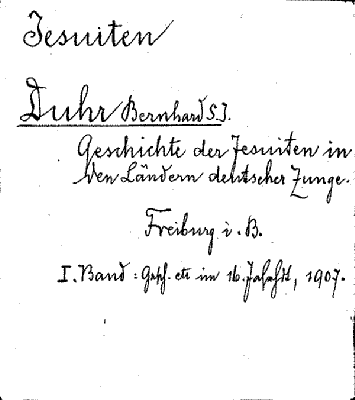 Jesuiten
Duhr Bernhard S.J.
Geschichte der Jesuiten in
den Ländern deutscher Zunge.
Freiburg i. B.
I. Band: Gesch. etc im 16. Jahrhdt, 1907.